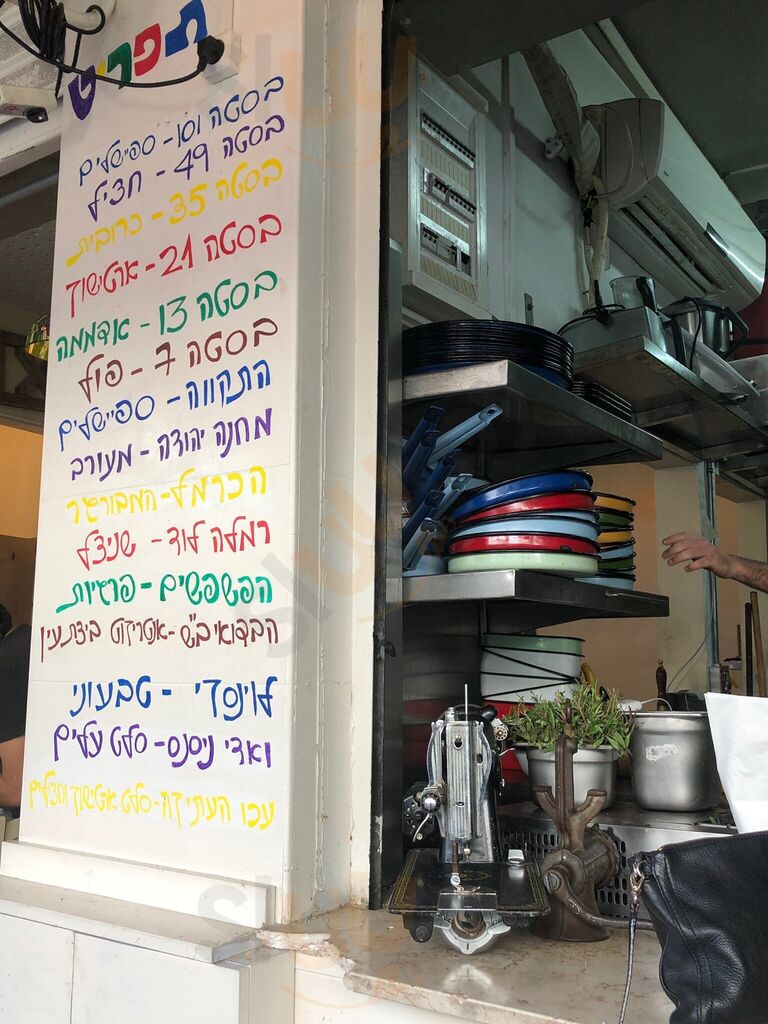 תפריט
בסטה 101 - ספיישלים
בסטה 49 - חציל
בסטה 35 - כרובית
בסטה 21 - ארטישוק
בסטה 13 - אדממה
בסטה 7 - פול
התקווה - ספיישלים
מחנה יהודה - מעורב
הכרמל - המבורגר
רמלה לוד - שניצל
הפשפשים - פרגיות
הבדואי ב"ש - אנטריקוט ביצת עין
לוינסקי - טבעוני
ואדי ניסנס - סלט עלים
עכו העתיקה - סלט ארטישוק וחצילים